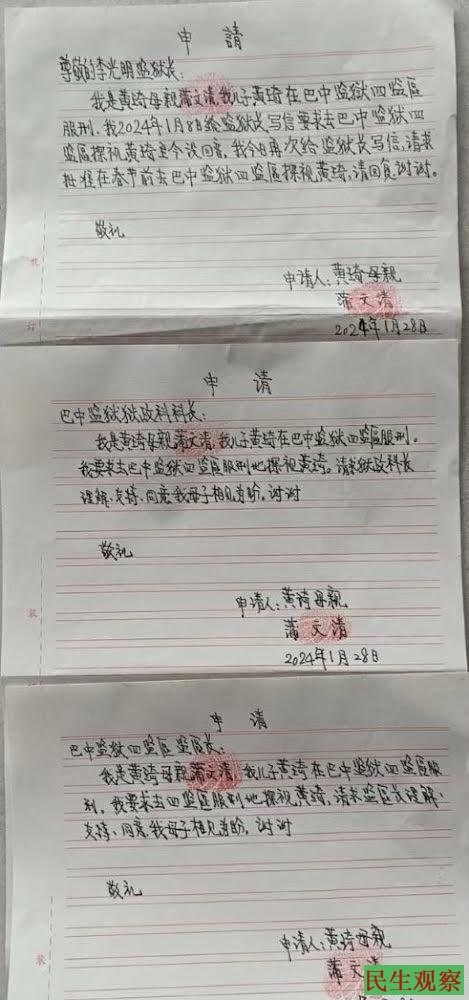 申請
尊敬的李光明监狱长：
我是黄琦母亲蒲文清，我儿子黄琦在巴中监狱四监区
服刑，我2024年1月8日给监狱长写信要求去巴中监狱四
监区探视黄琦至今没回音，我今日再次给监狱长写信，请求
批准在春节前去巴中监狱四监区探视黄琦，请回复谢谢。
敬礼
申请人：黄琦母親
蒲文清
2024年1月28日
申请
巴中监狱狱政科科长：
我是黄琦母亲蒲文清，我儿子黄琦在巴中监狱四监区服刑。
我要求去巴中监狱四监区服刑地探视黄琦。请求狱政科长
理解、支持、同意我母子相见为盼。谢谢
敬礼
申请人：黄琦母親
蒲文清
2024年1月28日
申请
巴中监狱四监区监区长：
我是黄琦母親蒲文清，我儿子黄琦在巴中监狱四监区服
刑，我要求去四监区服刑地探视黄琦，请求监区长理解、
支持、同意我母子相见为盼，谢谢
敬礼
申请人：黄琦母親
蒲文清
装
订
装
装
民生观察